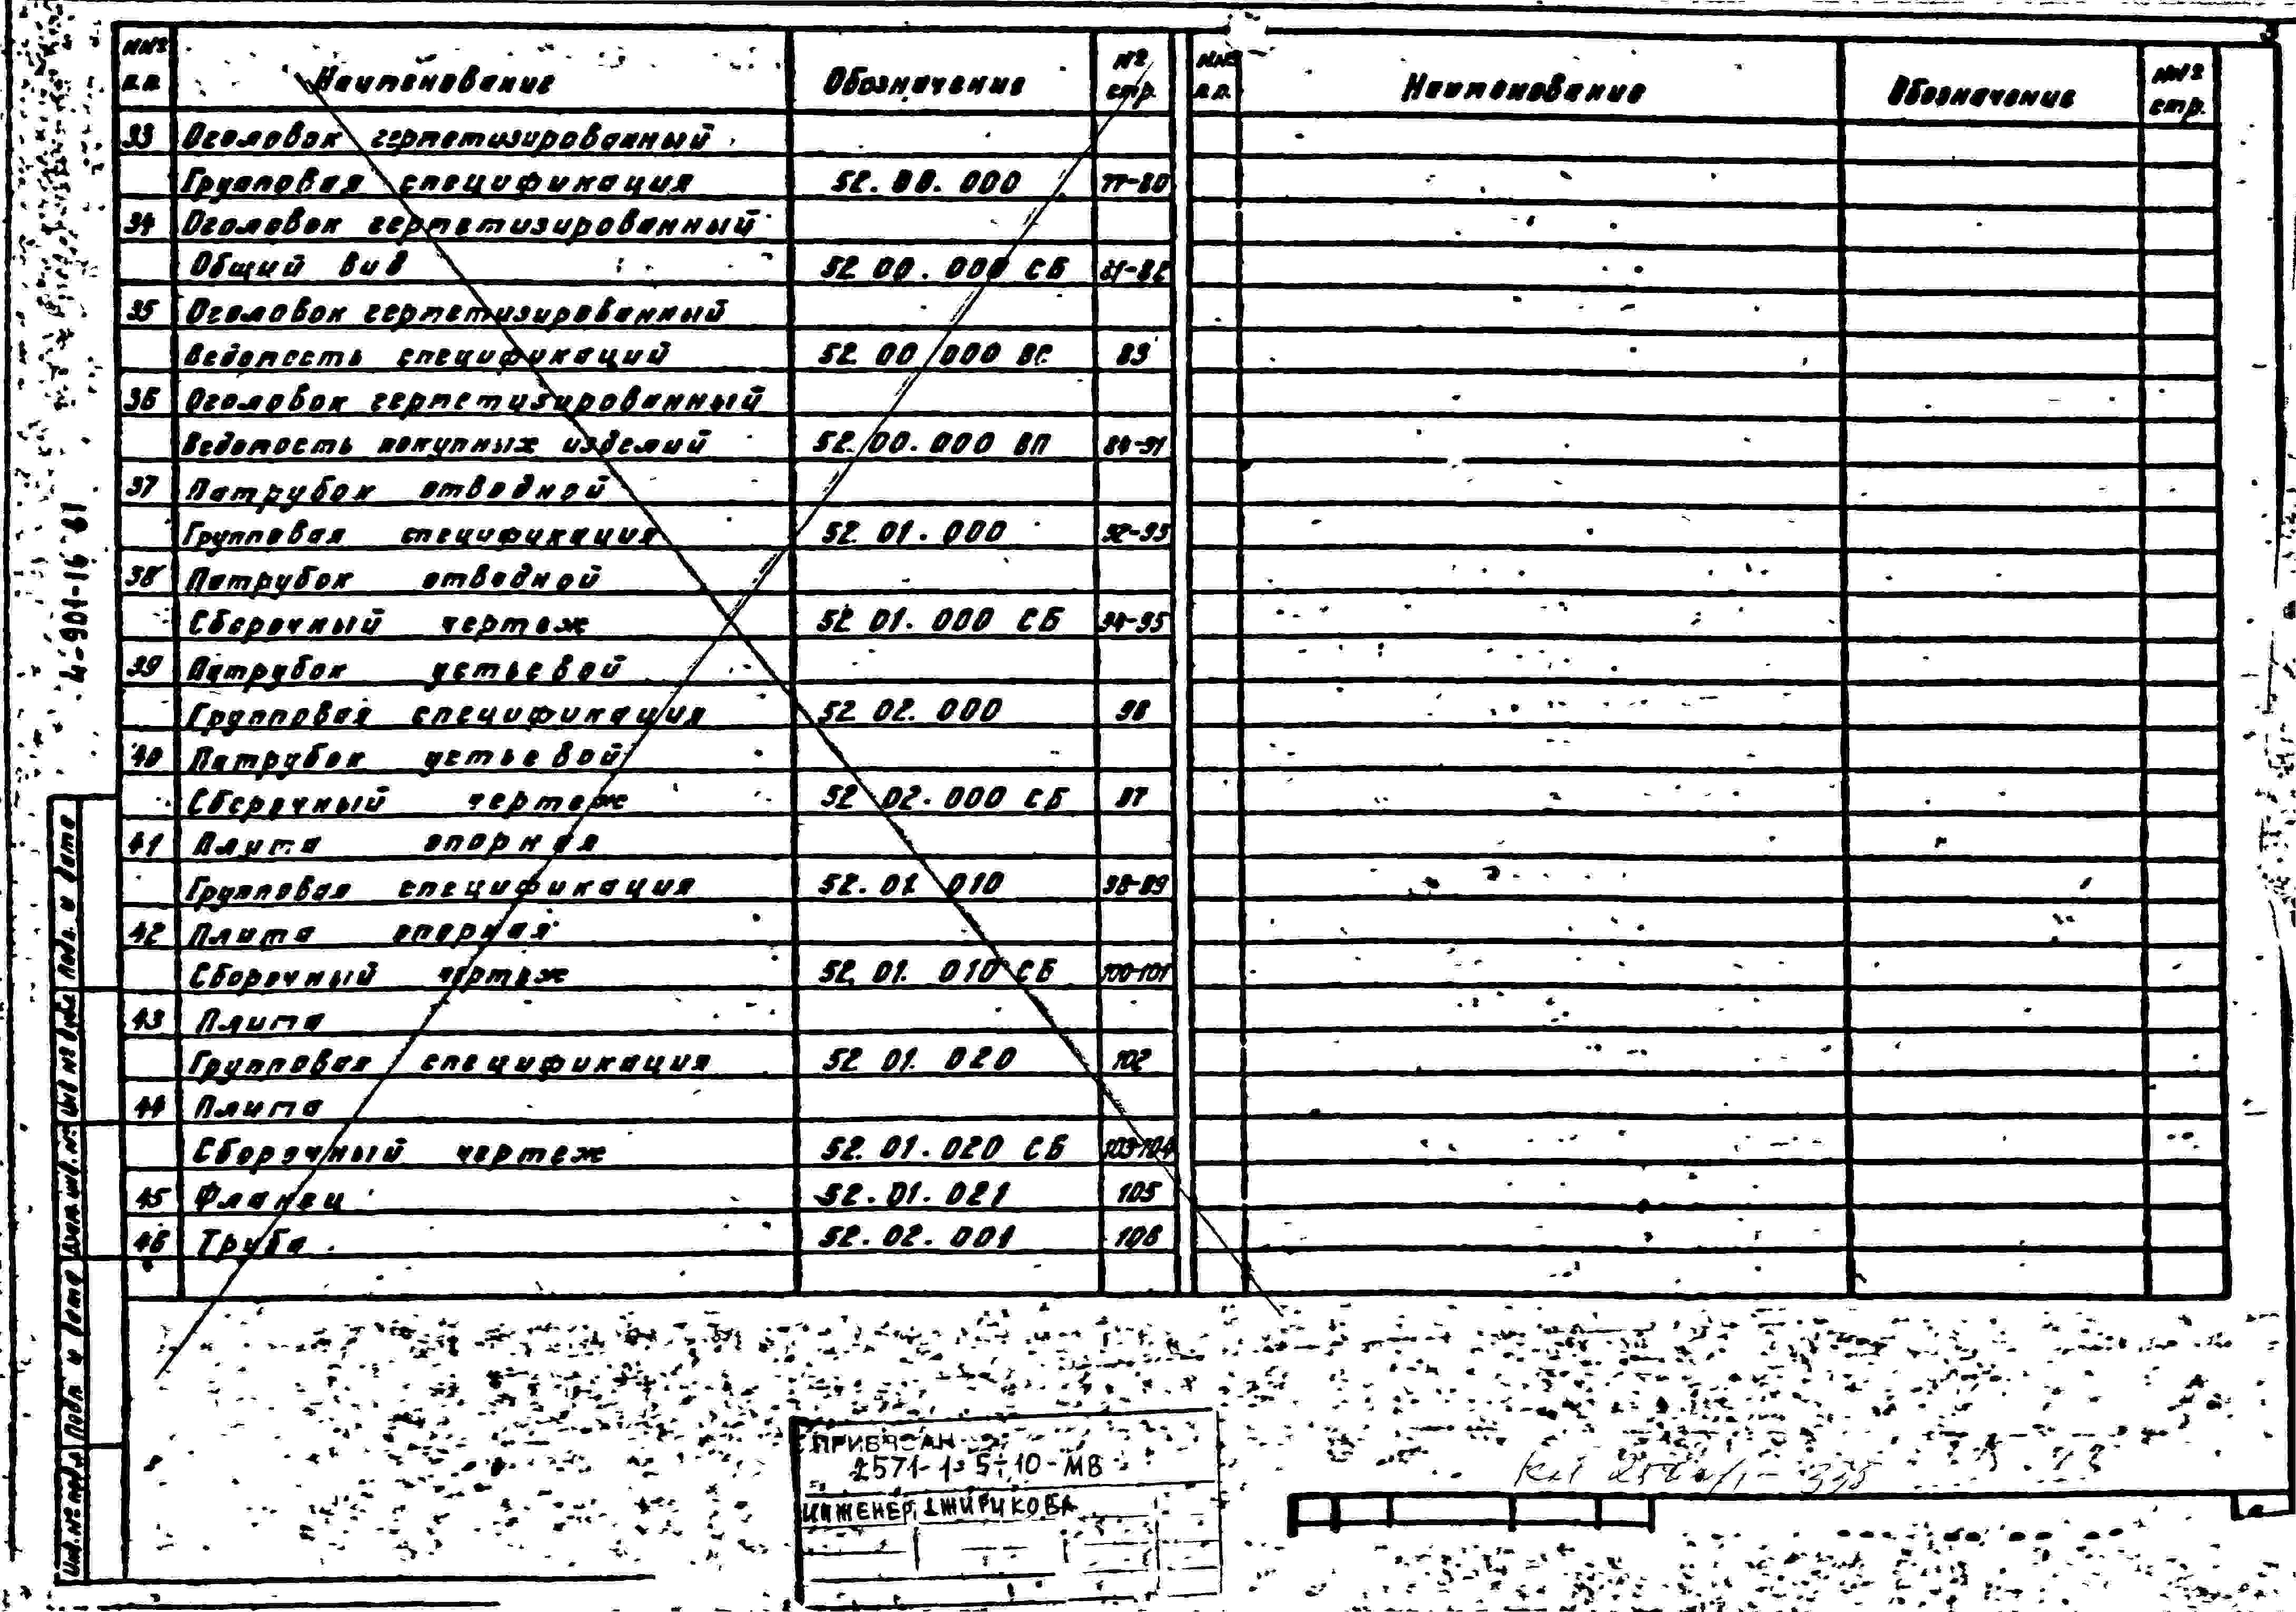 3
ННº п.п. Наименование Обозначение Nº стр. ННº п.п. Наименование Обозначение ННº стр.
33 Оголовок герметизированный
Групповая спецификация 52.00.000 77-80
34 Оголовок герметизированный
Общий вид 52 00.000 СБ 81-82
35 Оголовок герметизированный
Ведомость спецификаций 52 00 000 ВС 83
36 Оголовок герметизированный
Ведомость покупных изделий 52.00.000 ВП 84-91
37 Патрубок отводной
Групповая спецификация 52 01.000 92-93
38 Патрубок отводной
Сборочный чертеж 52 01.000 СБ 94-95
39 Патрубок устьевой
Групповая спецификация 52 02.000
40 Патрубок устьевой
Сборочный чертеж 52 02.000 СБ 97
41 Плита опорная
Групповая спецификация 52.01 010
42 Плита опорная
Сборочный чертеж 52.01.010 СБ 100-101
43 Плита
Групповая спецификация 52 01.020 102
44 Плита
Сборочный чертеж 52.01.020 СБ 103-104
45 Фланец 52.01.021 105
46 Труба 52.02.001 106
4-901-16
Подп. и дата
Инв.№ подл
ПРИВЯЗАН
2571-1 5÷10-МВ
ИНЖЕНЕР